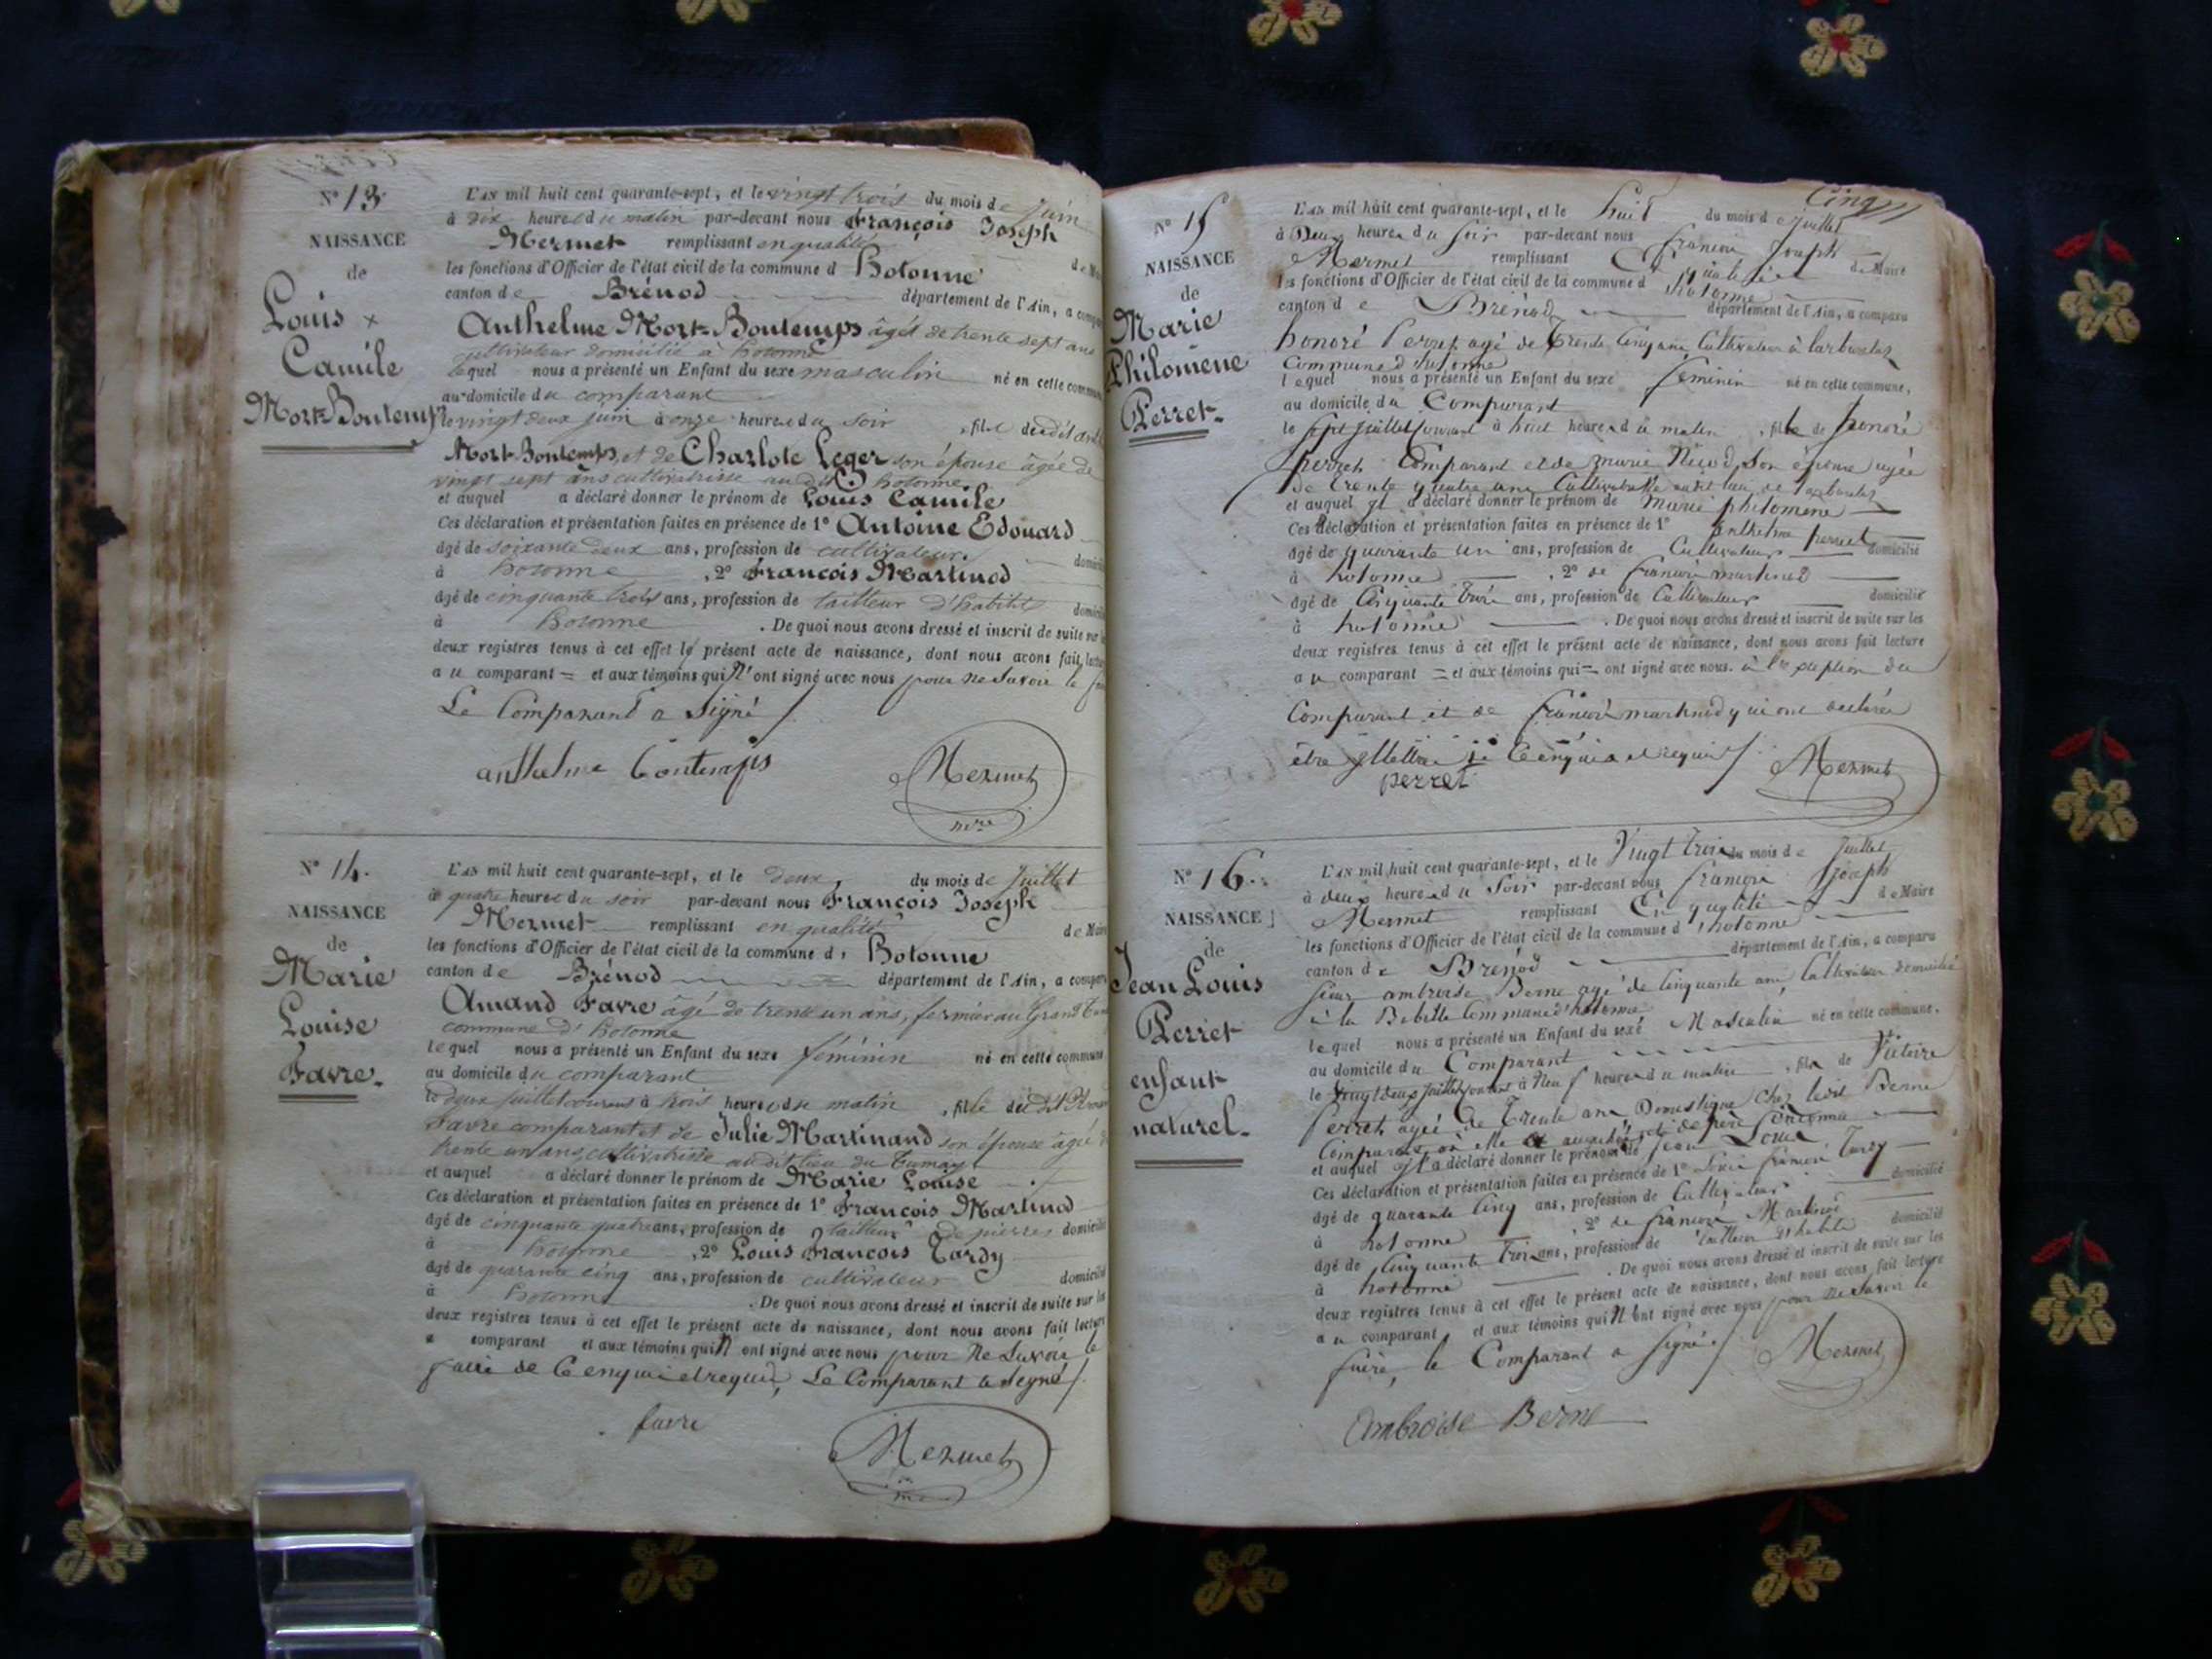 N° 13.
NAISSANCE
de
Louis ×
Camile
Mort-Bontemps
L'AN mil huit cent quarante-sept, et le vingt trois du mois de Juin
à dix heures du matin par-devant nous François Joseph
Mermet remplissant en qualité de
les fonctions d'Officier de l'état civil de la commune d Hotonne
canton de Brénod département de l'Ain, a
Anthelme Mort-Bontemps âgé de trente sept ans
cultivateur domicilié à hotonne
lequel nous a présenté un Enfant du sexe masculin né en cette
au domicile du comparant
le vingt deux juin à onze heures du soir , fils dudit
Mort-Bontemps, et de Charlote Leger son épouse âgée de
vingt sept ans cultivatrisse audit hotonne
et auquel a déclaré donner le prénom de Louis Camile
Ces déclaration et présentation faites en présence de 1° Antoine Edouard
âgé de soixante deux ans, profession de cultivateur
à hotonne , 2° François Martinod
âgé de cinquante trois ans, profession de tailleur d'habits
à hotonne . De quoi nous avons dressé et inscrit de suite sur
deux registres tenus à cet effet le présent acte de naissance, dont nous avons fait
au comparant = et aux témoins qui n'ont signé avec nous pour ne savoir le
Le Comparant a signé
anthelme bontemps Mermet
N° 14.
NAISSANCE
de
Marie
Louise
Favre.
L'AN mil huit cent quarante-sept, et le deux du mois de Juillet
à quatre heures du soir par-devant nous François Joseph
Mermet remplissant en qualité de
les fonctions d'Officier de l'état civil de la commune d' Hotonne
canton de Brénod département de l'Ain, a
Amand Favre âgé de trente un ans, fermier au Grand
commune d'hotonne
lequel nous a présenté un Enfant du sexe féminin né en cette commune
au domicile du comparant
le deux juillet courant à trois heures du matin , fille dudit
Favre comparant et de Julie Martinand son épouse âgée de
trente un ans, cultivatrisse audit lieu du
et auquel a déclaré donner le prénom de Marie Louise
Ces déclaration et présentation faites en présence de 1° François Martinod
âgé de cinquante quatre ans, profession de tailleur de pierres
à hotonne , 2° Louis François Tardy
âgé de quarante cinq ans, profession de cultivateur
à hotonne . De quoi nous avons dressé et inscrit de suite sur
deux registres tenus à cet effet le présent acte de naissance, dont nous avons fait lecture
comparant et aux témoins qui n ont signé avec nous pour ne savoir le
faire de ce enquis et requis, Le Comparant a signé
favre
Mermet
Cinq
N° 15
NAISSANCE
de
Marie
Philomène
Perret.
L'AN mil huit cent quarante-sept, et le huit du mois d Juillet
à Deux heures du soir par-devant nous françois Joseph
Mermet remplissant En qualité de Maire
les fonctions d'Officier de l'état civil de la commune d hotonne
canton de Brénod département de l'Ain, a comparu
honoré Perret agé de trente cinq ans Cultivateur à
Commune d'hotonne
lequel nous a présenté un Enfant du sexe féminin né en cette commune,
au domicile du Comparant
le sept juillet courant à huit heures du matin , fille de honoré
perret Comparant et de marie Nicod, Son épouse agée
de trente quatre ans Cultivatrisse audit lieu de
et auquel il a déclaré donner le prénom de Marie philomene
Ces déclaration et présentation faites en présence de 1° anthelme perret
âgé de quarante un ans, profession de Cultivateur domicilié
à hotonne , 2° de françois martinod
âgé de Cinquante trois ans, profession de Cultivateur domicilié
à hotonne . De quoi nous avons dressé et inscrit de suite sur les
deux registres tenus à cet effet le présent acte de naissance, dont nous avons fait lecture
au comparant = et aux témoins qui = ont signé avec nous. à l'exception du
Comparant et de françois martinod qui ont déclaré
être de ce enquis et requis Mermet
perret
N° 16.
NAISSANCE
de
Jean Louis
Perret
enfant
naturel.
L'AN mil huit cent quarante-sept, et le Vingt trois du mois de Juillet
à deux heures du Soir par-devant nous françois Joseph
Mermet remplissant En qualité de Maire
les fonctions d'Officier de l'état civil de la commune d'hotonne
canton de Brénod département de l'Ain, a comparu
Sieur ambroise Berne agé de Cinquante ans, Cultivateur domicilié
à la Commune d'hotonne
lequel nous a présenté un Enfant du sexe Masculin né en cette commune,
au domicile du Comparant
le Vingt deux juillet courant à Neuf heures du matin , fils de Victoire
Perret agée de Trente ans Domestique Chez ledit Berne
Comparant où elle a accouché, et de père inconnu
et auquel il a déclaré donner le prénom de Jean Louis
Ces déclaration et présentation faites en présence de 1° Louis françois Tardy
âgé de quarante Cinq ans, profession de Cultivateur domicilié
à hotonne , 2° de françois Martinod
âgé de Cinquante trois ans, profession de tailleur d'habits domicilié
à hotonne . De quoi nous avons dressé et inscrit de suite sur les
deux registres tenus à cet effet le présent acte de naissance, dont nous avons fait lecture
au comparant et aux témoins qui n ont signé avec nous pour ne Savoir le
faire, le Comparant a signé Mermet
Ambroise Berne